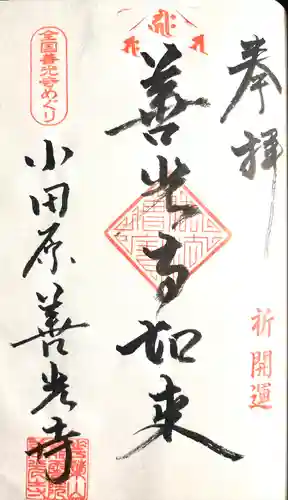 奉拝
祈開運
善光寺如来
全国善光寺めぐり
小田原善光寺